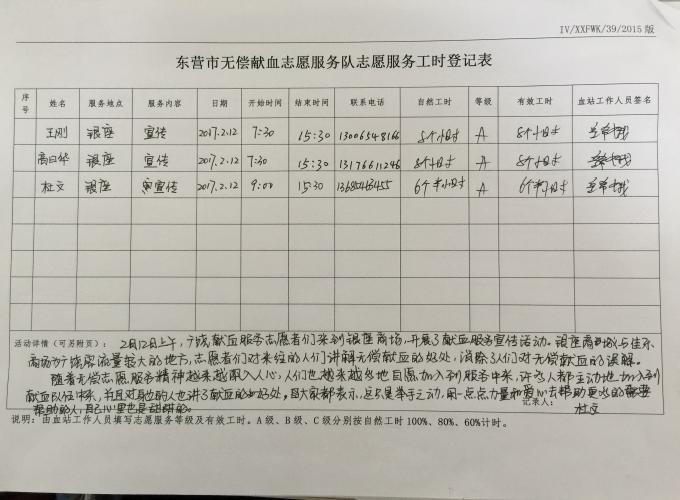 IV/XXFWK/39/2015 版
东营市无偿献血志愿服务队志愿服务工时登记表
序号 姓名 服务地点 服务内容 日期 开始时间 结束时间 联系电话 自然工时 等级 有效工时 血站工作人员签名
王刚 银座 宣传 2017.2.12 7:30 15:30 13006548166 8个小时 A 8个小时
高曰华 银座 宣传 2017.2.12 7:30 15:30 13176611246 8个小时 A 8个小时
杜文 银座 宣传 2017.2.12 9:00 15:30 6个半小时 A 6个半小时
活动详情（可另附页）： 2月12日上午，广饶献血服务志愿者们来到银座商场，开展了献血服务宣传活动。银座商场与佳乐
商场为广饶客流量较大的地方，志愿者们对来往的人们讲解无偿献血的好处，消除了人们对无偿献血的误解。
随着无偿志愿服务精神越来越深入人心，人们也越来越多地自愿加入到服务中来，许多人都主动地加入到
献血队伍中来，并且对其他的人也讲了献血的好处，大家都表示，这只是举手之动，用一点点力量和爱心去帮助更多的需要
帮助的人，自己心里也是甜甜的。
记录人：
杜文
说明：由血站工作人员填写志愿服务等级及有效工时。A 级、B 级、C 级分别按自然工时 100%、80%、60%计时。